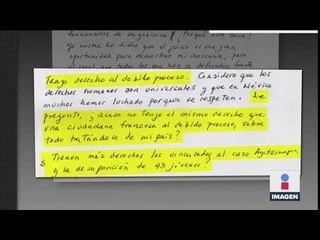 funcionarios de su gobierno? ¿Porque esta saña!
Yo misma he dicho que el juicio es una gran
oportunidad para demostrar mi inocencia, pero
Tengo derecho al debido proceso. Considero que los
derechos humanos son universales y que en México
muchos hemos luchado porque se respeten. Le
pregunto, ¿acaso no tengo el mismo derecho que
una ciudadana francesa al debido proceso, sobre
todo tratándose de mi país?
¿Tienen más derechos los vinculados al caso Ayotzinapa
y la desaparición de 43 jóvenes?
IMAGEN